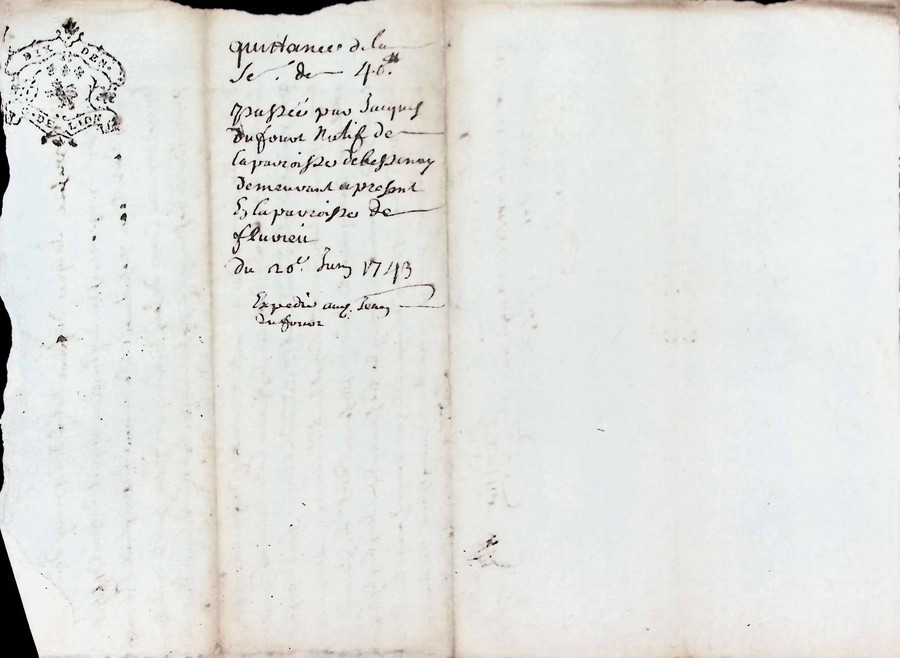 DIX DEN.
DE LION
quittance de la
Se. de 40#
passée par Jacques
Dufour Natif de
la paroisse de bessenay
demeurant apresent
En la paroisse de
fluvieu
du 20e. Juin 1743
Expedié aud. Jean
Dufour